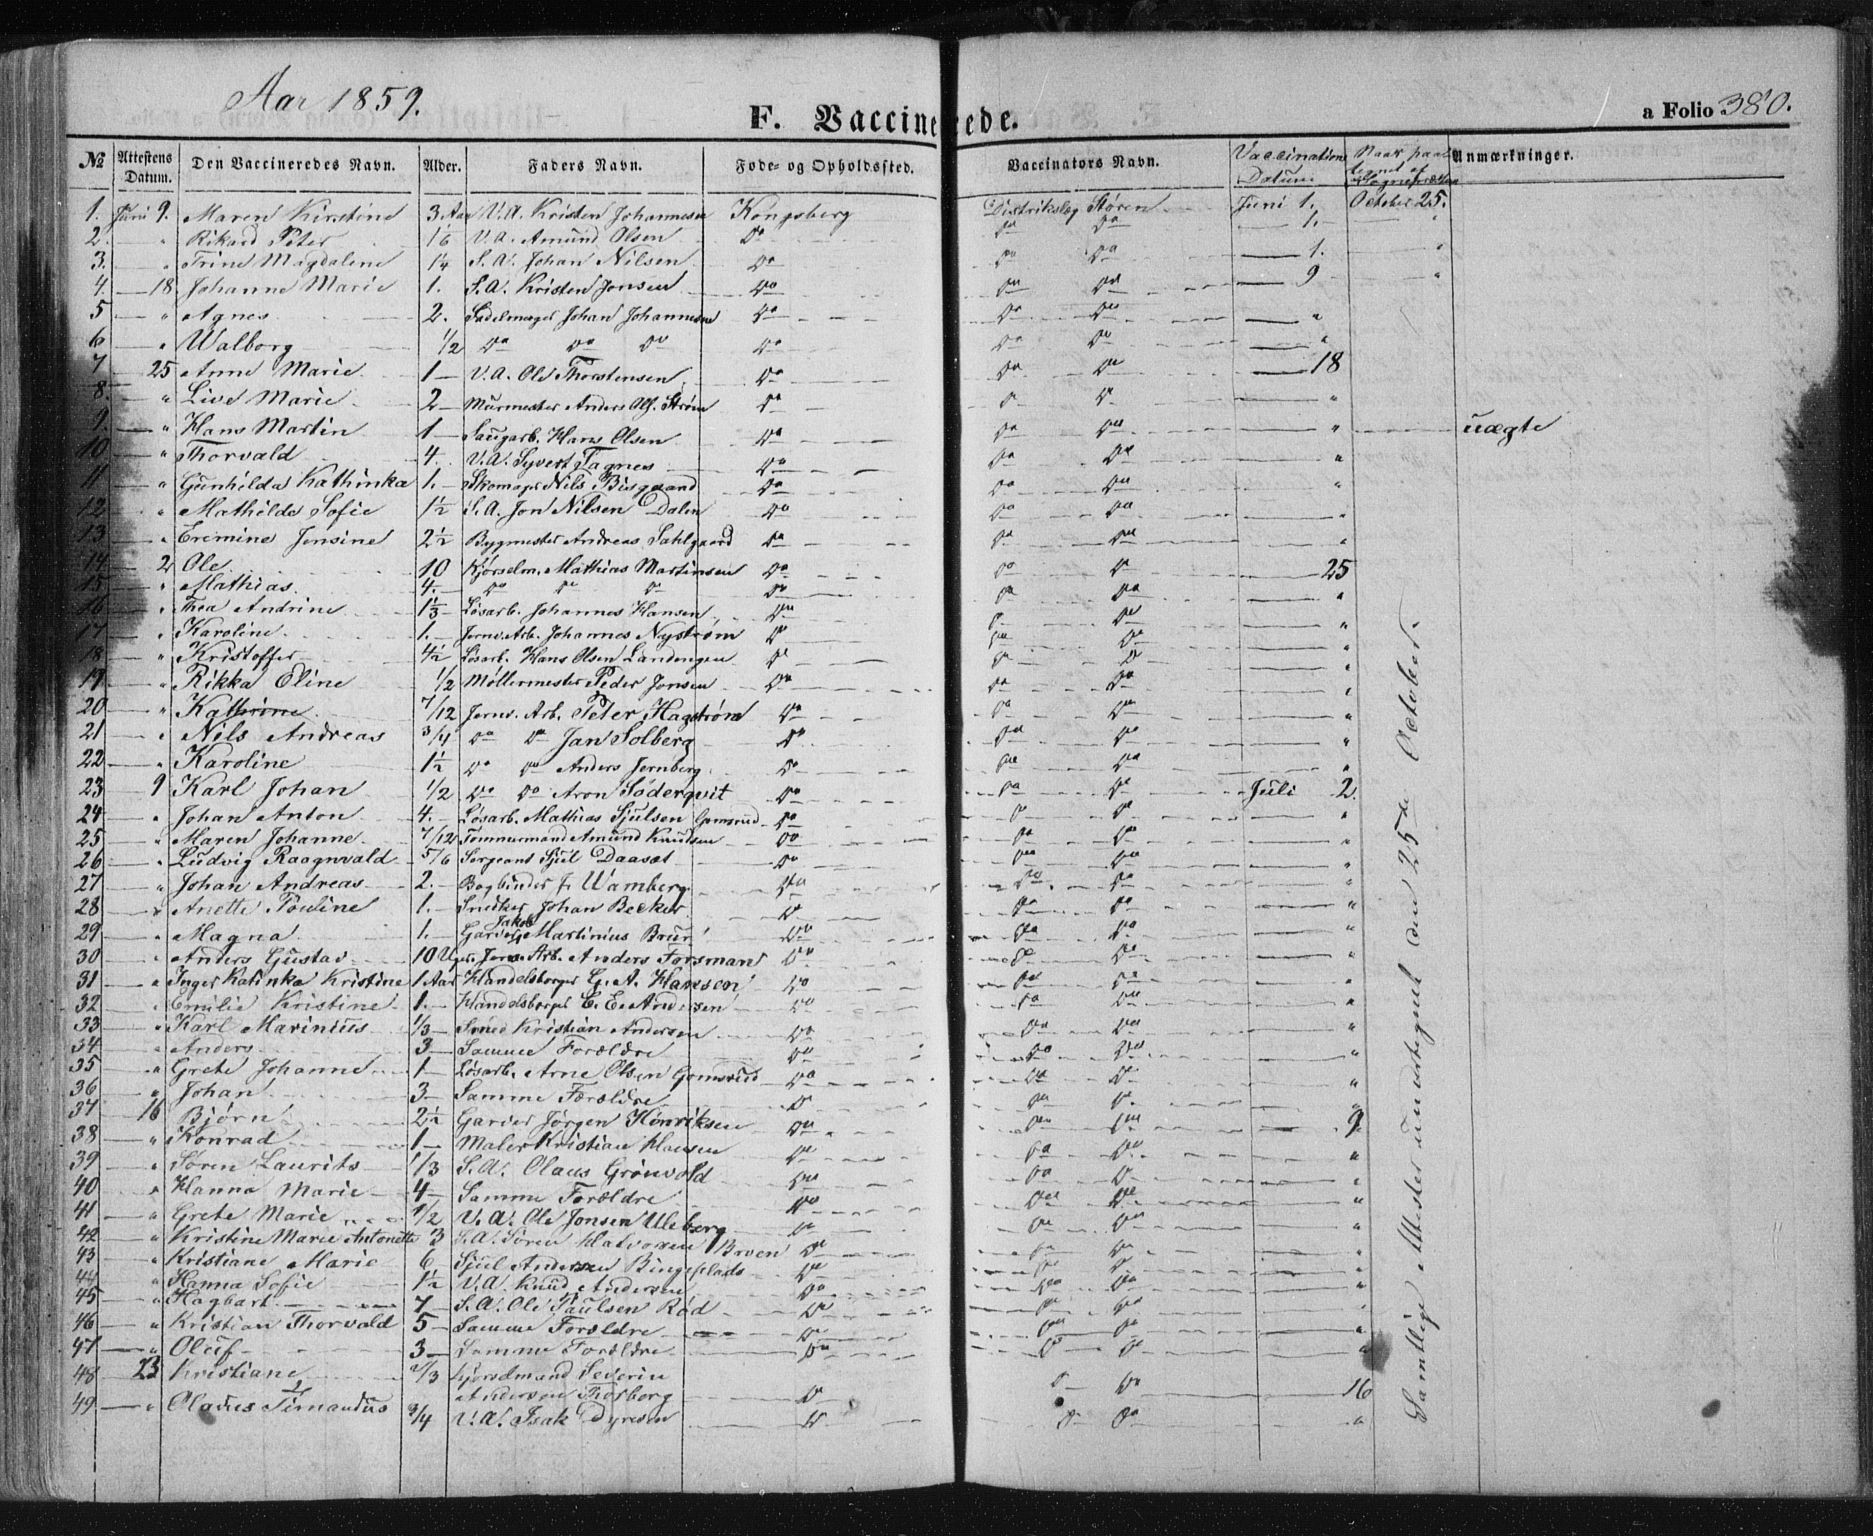 Aar 1859.
F. Vaccinerede.
a Folio 380.
№ Attestens Datum. Den Vaccineredes Navn. Alder. Faders Navn. Føde- og Opholdssted. Vaccinators Navn. Vaccinations Datum Naar paategnet af Anmærkninger.
1. Juni 9. Maren Kirstine 3 Aar V.A. Kristen Johannesen Kongsberg Distriktslæg Støren Juni 1. October 25.
2. " Rikard Peter 1/6 V.A. Amund Olsen Do Do Do 1. "
3. " Trine Magdalene 1/4 S.A. Johan Nilsen Do Do Do 1. "
4. 18 Johanne Marie 1. S.A. Kristen Jonsen Do Do Do 9 "
5 " Agnes 2. Sadelmager Johan Johannesen Do Do Do "
6 " Walborg 1/2 Do Do Do Do Do Do "
7 25 Anne Marie 1 V.A. Ole Thorstensen Do Do Do 18
8. " Live Marie 2 Murmester Anders Ols. Strøm Do Do Do "
9. " Hans Martin 1 Saugarb. Hans Olsen Do Do Do " uægte
10 " Thorvald 4. V.A. Syvert Fagnes Do Do Do "
11 " Gunhilda Kathinka 1. Skomager Nils Bisgaard Do Do Do "
12 " Mathilde Sofie 1½ S.A. Jon Nilsen Dalen Do Do Do "
13 " Eremine Jensine 2½ Bygmester Andreas Dahlgaard Do Do Do "
14 2 Ole 10 Kjørselm. Mathias Martinsen Do Do Do 25
15 " Mathias 4. Do Do Do Do Do Do "
16 " Thea Andrine 1⅓ Løsarb. Johannes Hansen Do Do Do "
17 " Karoline 1. Jernv. Arb. Johannes Nystrøm Do Do Do "
18 " Kristoffer 4½ Løsarb. Hans Olsen Landengen Do Do Do "
19 " Rikka Eline 1/2 Møllermester Peder Jonsen Do Do Do "
20 " Kathrine 7/12 Jernv. Arb. Peter Hagstrøm Do Do Do "
21 " Nils Andreas 3/4 Do Do Jan Solberg Do Do Do "
22 " Karoline 1½ Do Do Anders Jernberg Do Do Do "
23 9 Karl Johan 1/2 Do Do Aron Søderqvit Do Do Do Juli 2.
24 " Johan Anton 4. Løsarb. Mathias Sjulsen Gomsrud Do Do Do "
25 " Maren Johanne 7/12 Tømmermand Amund Knudsen Do Do Do "
26 " Ludvig Raagnvald 5/6 Sergeant Sjul Daaset Do Do Do "
27 " Johan Andreas 2. Bogbinder J. Wamberg Do Do Do "
28 " Anette Pouline 1. Snedker Johan Becker Do Do Do "
29 " Magna 1. Garver Jakob Martinius Bruu Do Do Do "
30 " Anders Gustav 10 Uger Jernv. Arb. Anders Forsman Do Do Do "
31 " Inger Katinka Kristine 1 Aar Handelsborger G. A. Hansen Do Do Do "
32 " Emilie Kristine 1. Handelsborger C. E. Andersen Do Do Do "
33 " Karl Marinius 1/3 Smed Kristian Andersen Do Do Do "
34 " Anders 3 Samme Forældre Do Do Do "
35 " Grete Johanne 1 Løsarb. Arne Olsen Gomsrud Do Do Do
36 " Johan 3 Samme Forældre Do Do Do "
37 16 Bjørn 2½ Garver Jørgen Henriksen Do Do Do 9
38 " Konrad 1 Maler Kristian Hansen Do Do Do "
39 " Søren Laurits 1/3 S.A. Olaus Grønvold Do Do Do "
40 " Hanna Marie 4 Samme Forældre Do Do Do "
41 " Grete Marie 1/2 V.A. Ole Jonsen Uleberg Do Do Do "
42 " Kristine Marie Antonette 3 S.A. Søren Halvorsen Do Do Do "
43 " Kristiane Marie 6 Sjul Andersen Bingeplads Do Do Do "
44 " Hanna Sofie 1½ V.A. Knud Andersen Do Do Do "
45 " Hagbart 7 S.A. Ole Paulsen Rød Do Do Do "
46 " Kristian Thorvald 5 Samme Forældre Do Do Do "
47 " Oluf 3 Samme Forældre Do Do Do "
48 23 Kristiane 2/3 Kjørselmand Severin
Andersen Thorborg Do Do Do 16
49 " Olaves Fernandus 3/4 V.A. Isak Dyresen Do Do Do "
Samtlige Attester undertegnet den 25de October.